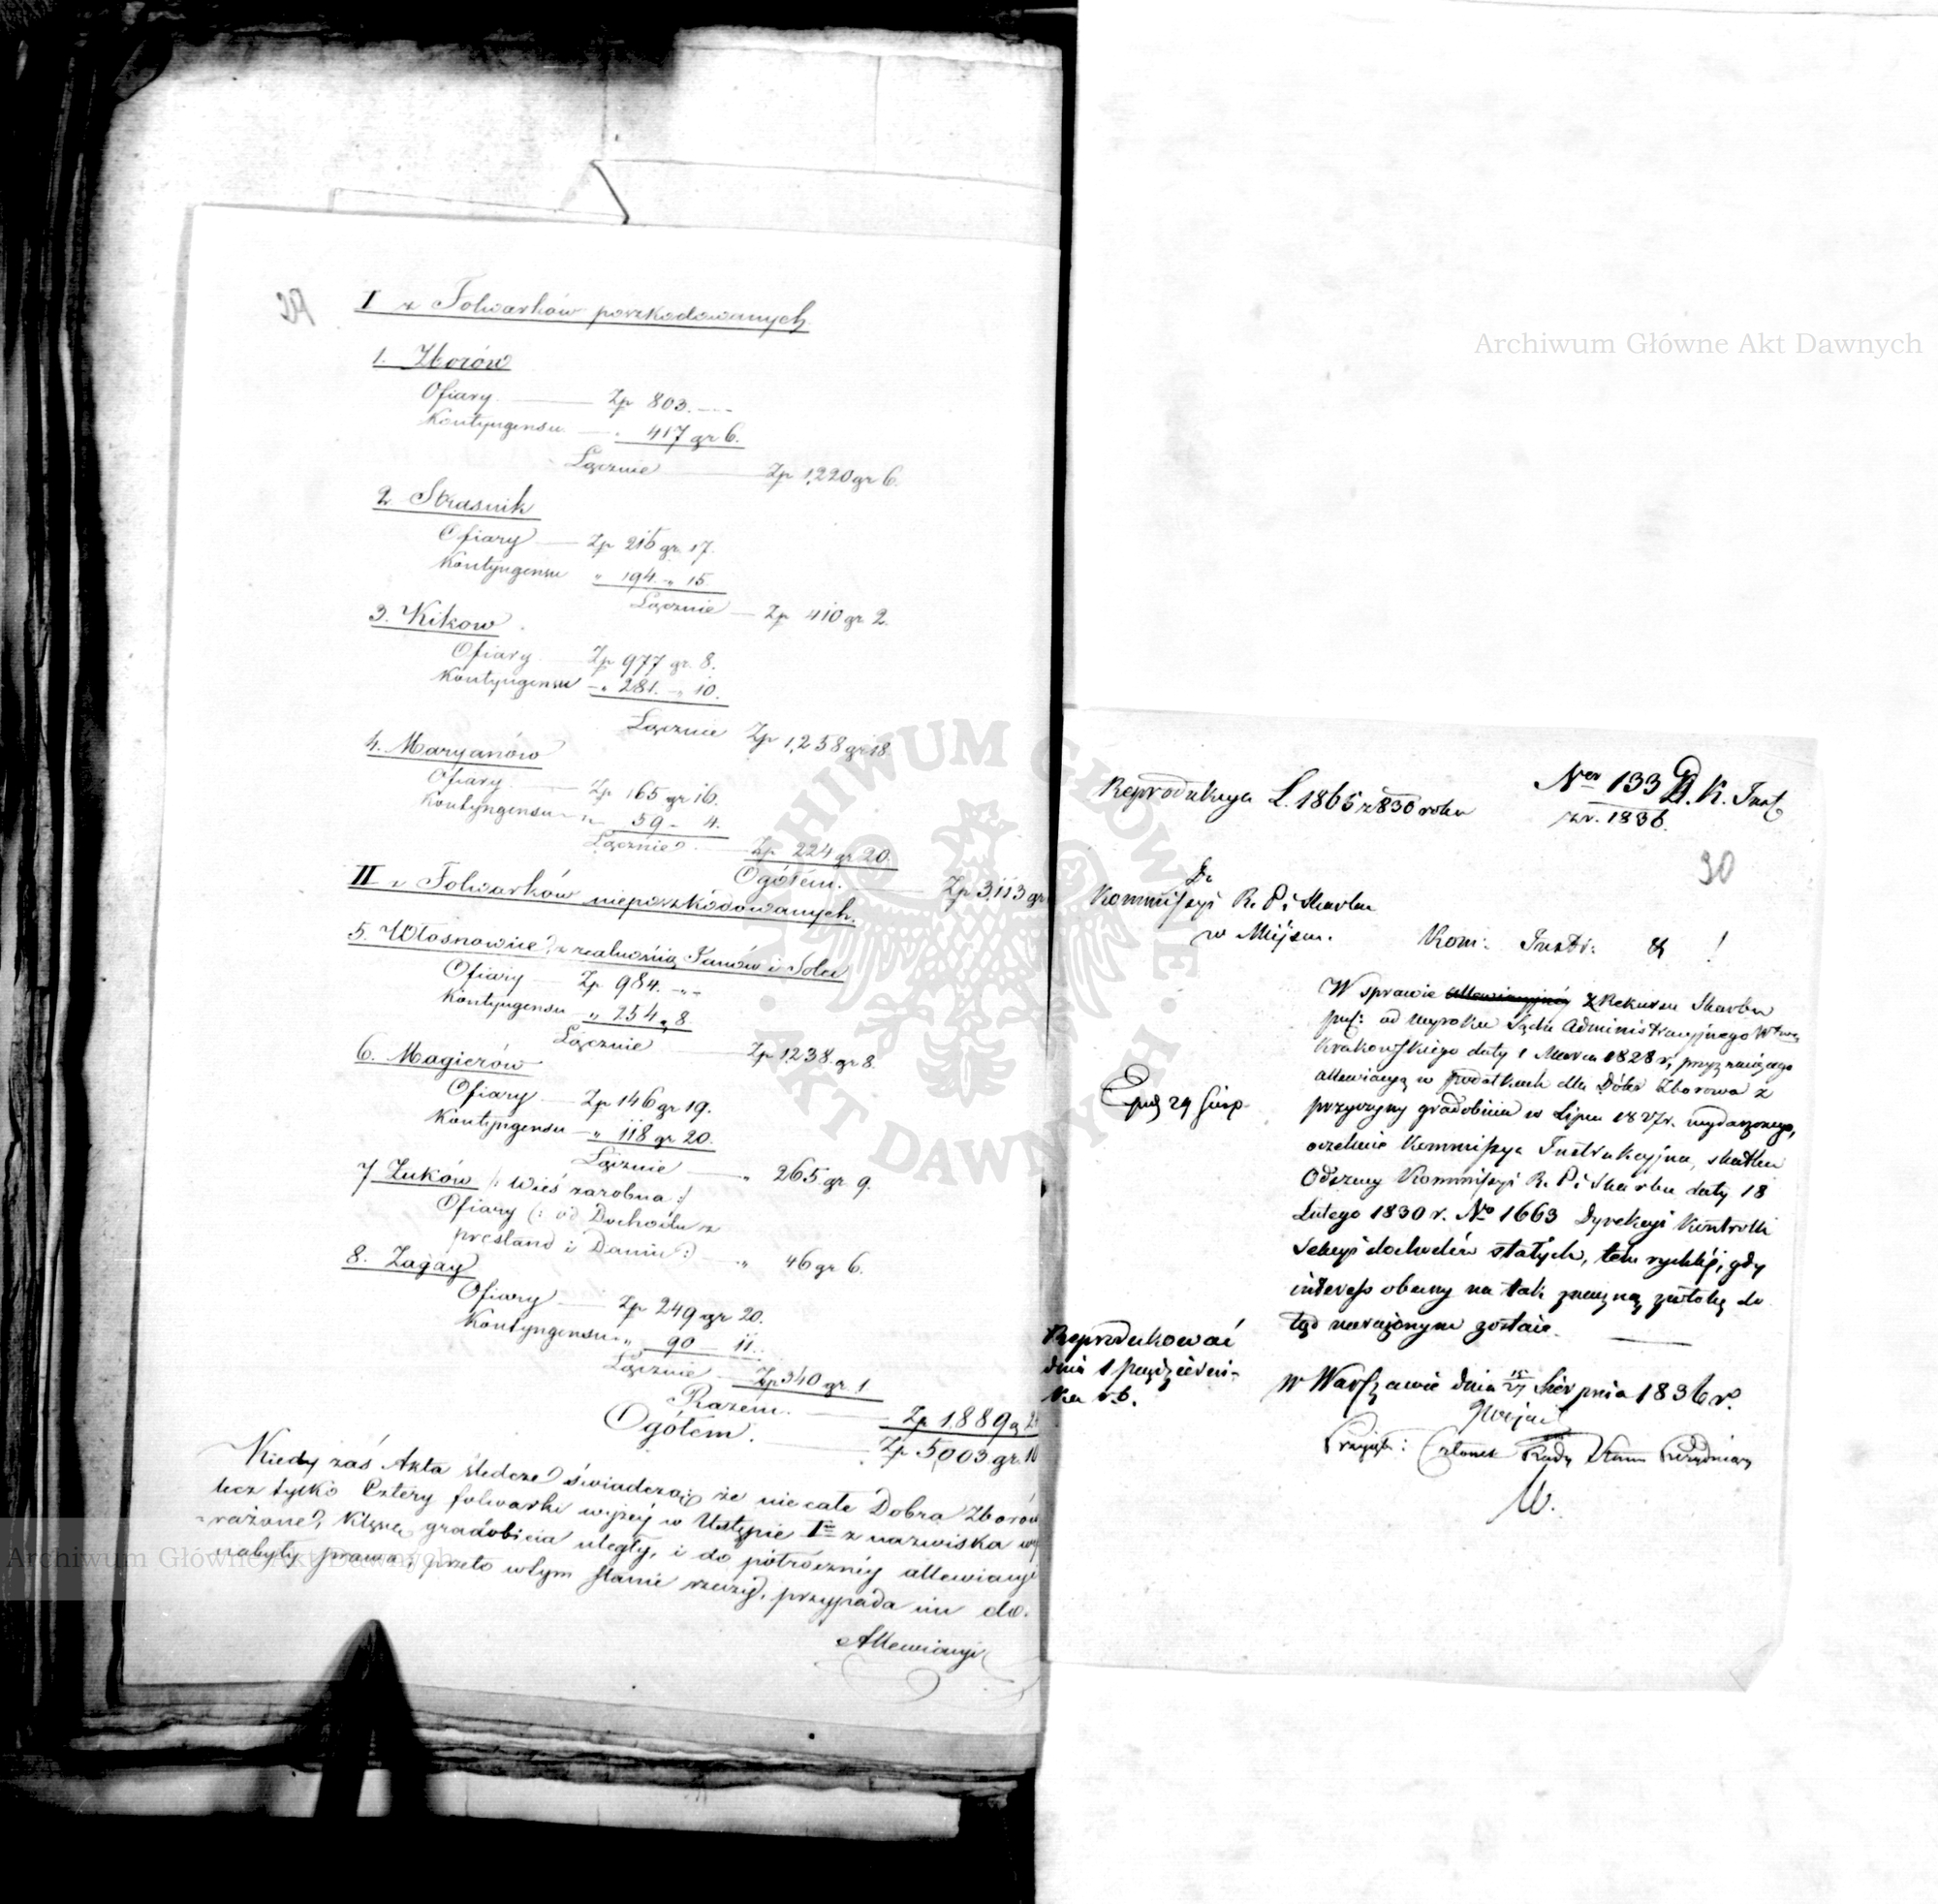 29
I z Folwarków poszkodowanych
1. Zborów
Ofiary Zp 803.
Kontyngensu 417 gr 6.
Łącznie Zp 1,220 gr 6.
2 Strasnik
Ofiary Zp 215 gr. 17.
Kontyngensu " 194 " 15
Łącznie Zp 410 gr 2.
3. Kikow
Ofiary Zp 977 gr. 8.
Kontyngensu " 281. " 10.
Łącznie Zp 1,258 gr 18
4. Maryanów
Ofiary Zp 165 gr 16.
Kontyngensu " 59 - 4.
Łącznie Zp 224 gr 20.
Ogółem. Zp 3,113 gr
II z Folwarków nieposzkodowanych.
5. Włosnowice z realnością Janów i Solec
Ofiary Zp 984.
Kontyngensu " 254 " 8
Łącznie Zp 1,238 gr 8.
6. Magierów
Ofiary Zp 146 gr 19.
Kontyngensu " 118 gr 20.
Łącznie " 265 gr. 9.
7 Żuków /: Wieś zarobna :/
Ofiary (: od Dochodu z
prestand i Danin :) " 46 gr 6.
8. Zagay
Ofiary Zp 249 gr 20.
Kontyngensu " 90 11.
Łącznie Zp 340 gr 1
Razem. Zp 1,889 g 2
Ogółem. Zp 5,003 gr. 10
Kiedy zaś Akta śledcze świadczą; że nie całe Dobra Zborów
lecz tylko Cztery folwarki wyżéj w Ustępie I z nazwiska wy
rażone, klęsce gradobicia uległy, i do półrocznéj allewiacyi
nabyły prawa, przeto w tym stanie rzeczy, przypada im do.
Allewiacyi
Reprodukcya L. 1865 z 830 roku
Ner 133 D. K. Inst
z r. 1836.
30
Do
Kommissyi R. P. i Skarbu
w Miejscu.
Kom: Instr: &!
W sprawie z Rekursu Skarbu
pub: od wyroku Sądu Administracyjnego Wtwa
Krakowskiego daty 1 Marca 1828 r, przyznającego
allewiacyą w podatkach dla Dóbr Zborowa z
przyczyny gradobicia w Lipcu 1827 r. wydarzonego,
oczekuie Kommissya Instrukcyjna, skutku
Odezwy Kommissyi R. P. i Skarbu daty 18
Lutego 1830 r. No 1663 Dyrekcyi Kontrolli
Sekcyi dochodów stałych, tem rychléj, gdy
interess obecny na tak znaczną zwłokę do
tąd narażonym zostaie.
Exp 29 Sierp
Reprodukować
dnia 1 Październi-
ka r. b.
w Warszawie dnia 15/27 Sierpnia 1836 r.
Przyjął: Członek Rady Stanu Prezydujący
W.
Archiwum Główne Akt Dawnych
Archiwum Główne Akt Dawnych
ARCHIWUM GŁÓWNE AKT DAWNYCH